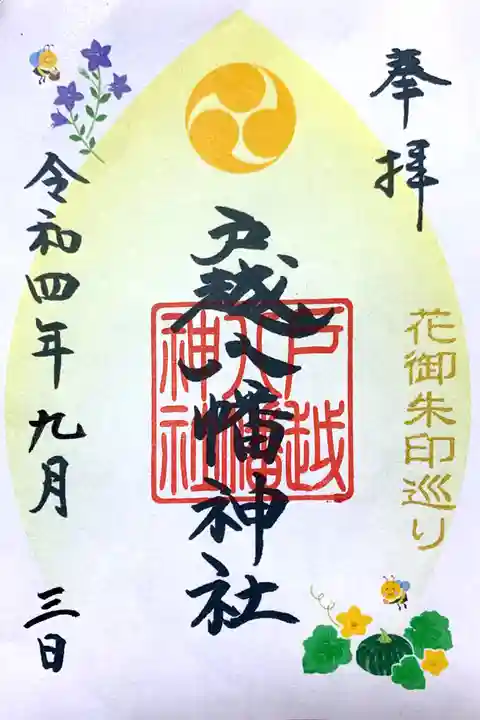 奉拝
花御朱印巡り
戸越八幡神社
戸越
八幡
神社
令和四年九月三日